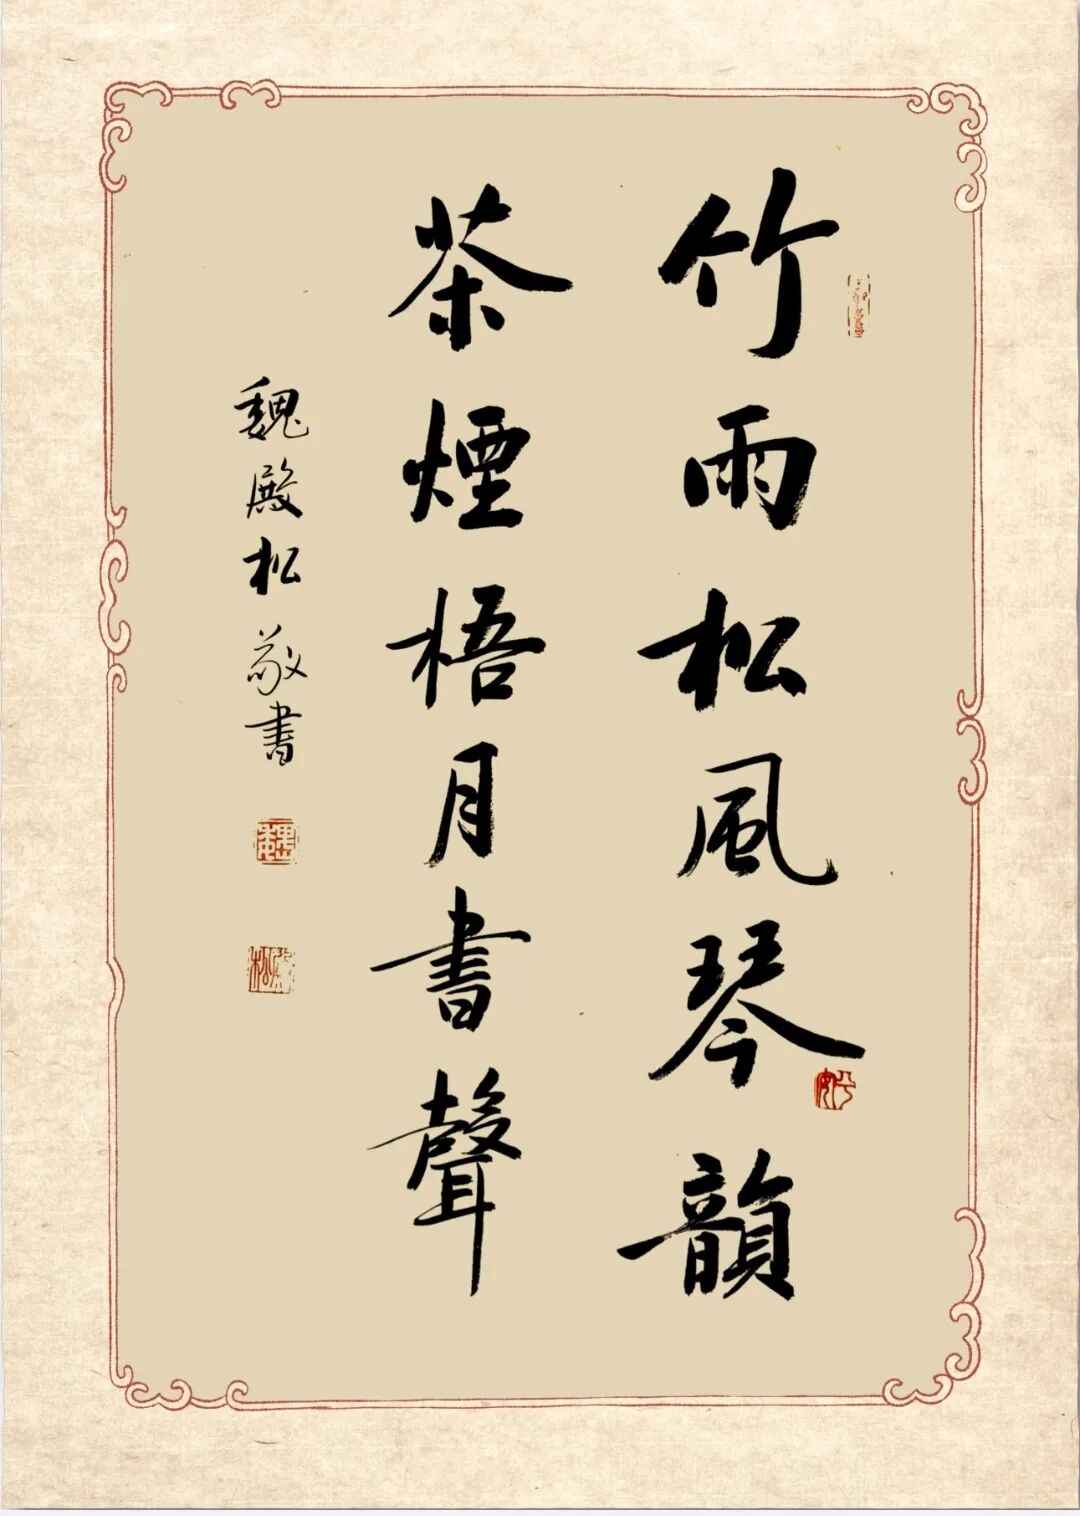 竹雨松風琴韻
茶煙梧月書聲
魏殿松敬書